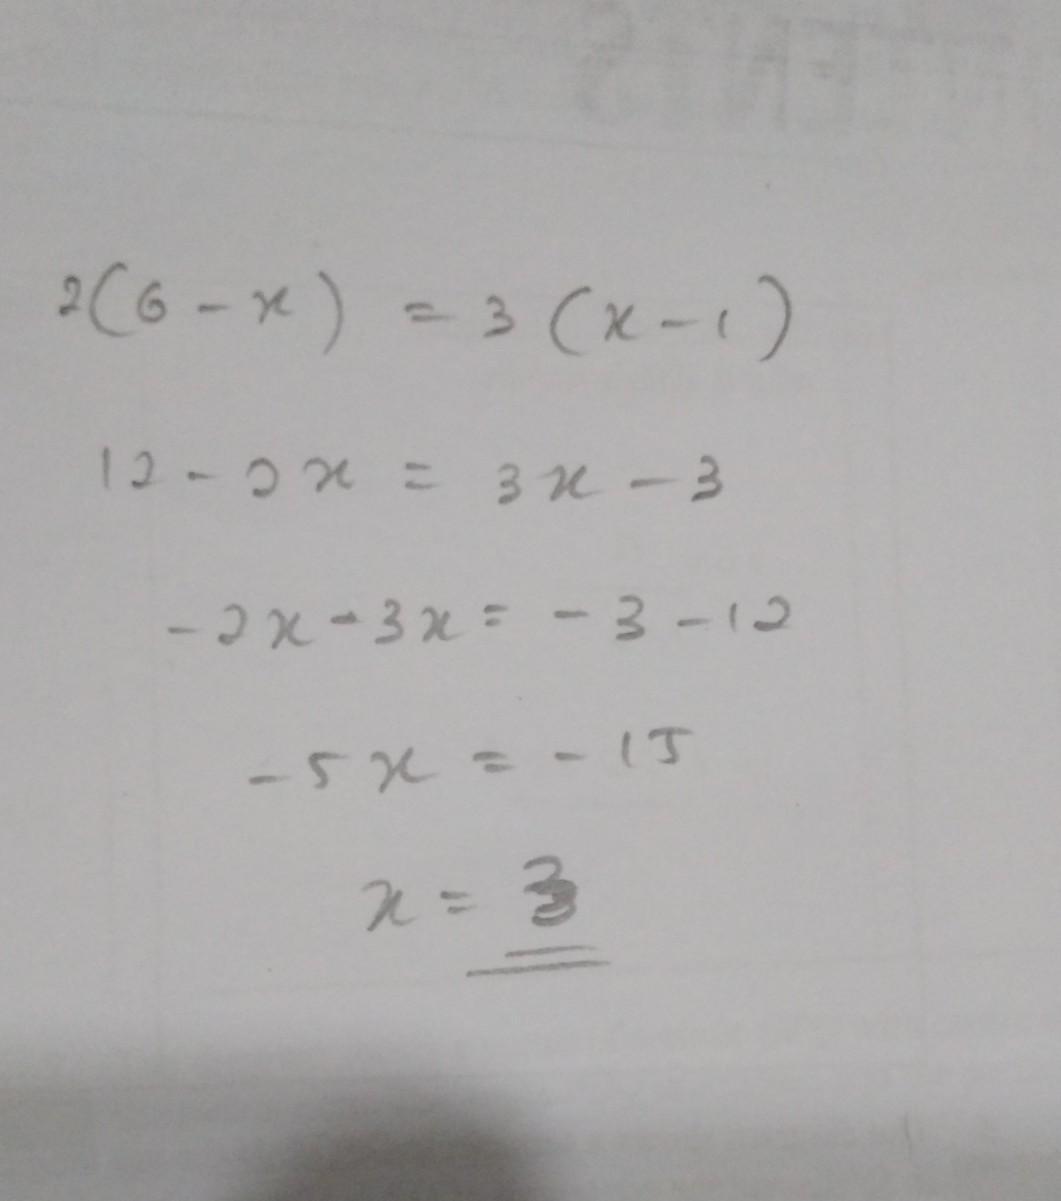 2(6-x) = 3(x-1)
12-2x = 3x-3
-2x-3x = -3-12
-5x = -15
x = 3